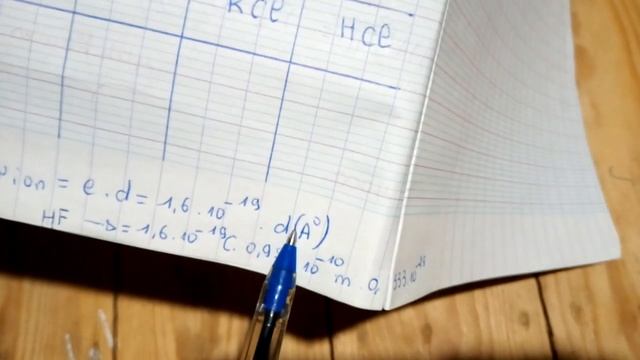 KCl
HCl
ion = e . d = 1,6 . 10⁻¹⁹ . d(A°)
HF → = 1,6 . 10⁻¹⁹C . 0,9 10⁻¹⁰ m . 0,